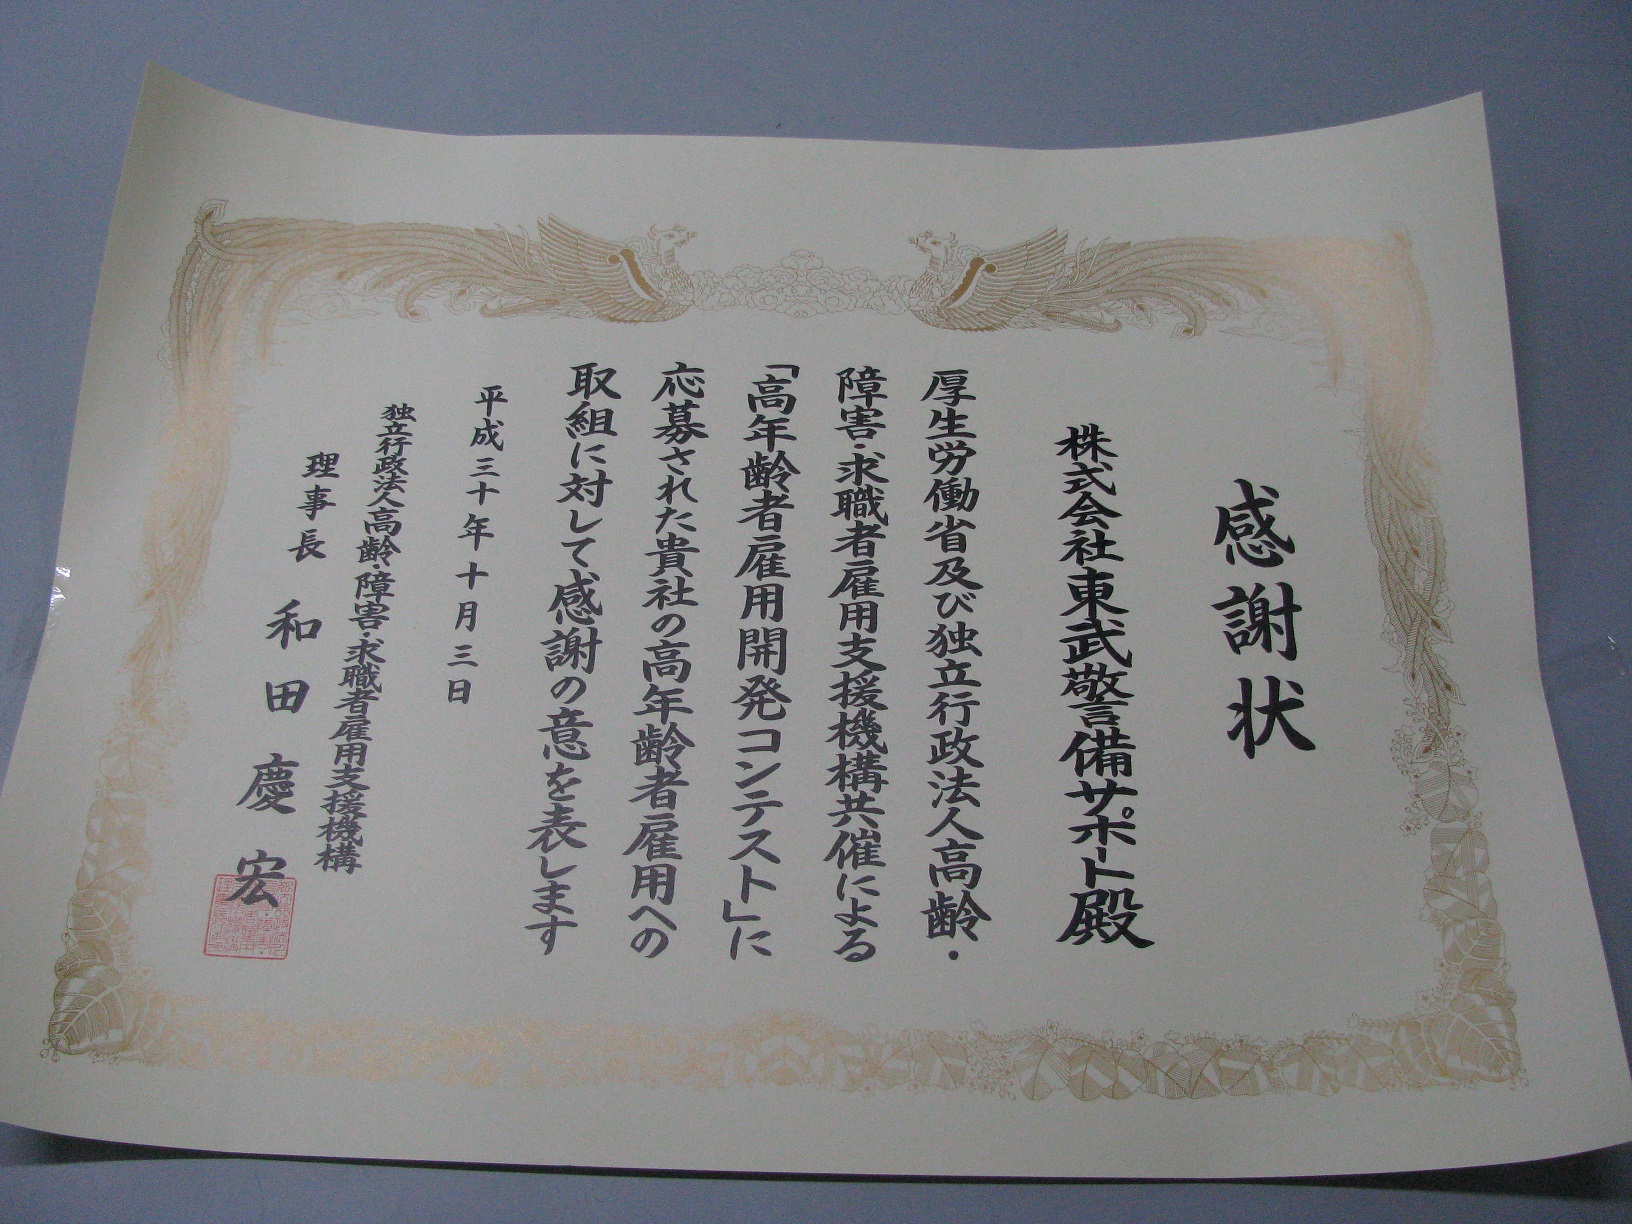 感謝状
株式会社東武警備サポート殿
厚生労働省及び独立行政法人高齢・
障害・求職者雇用支援機構共催による
「高年齢者雇用開発コンテスト」に
応募された貴社の高年齢者雇用への
取組に対して感謝の意を表します
平成三十年十月三日
独立行政法人高齢・障害・求職者雇用支援機構
理事長 和田慶宏